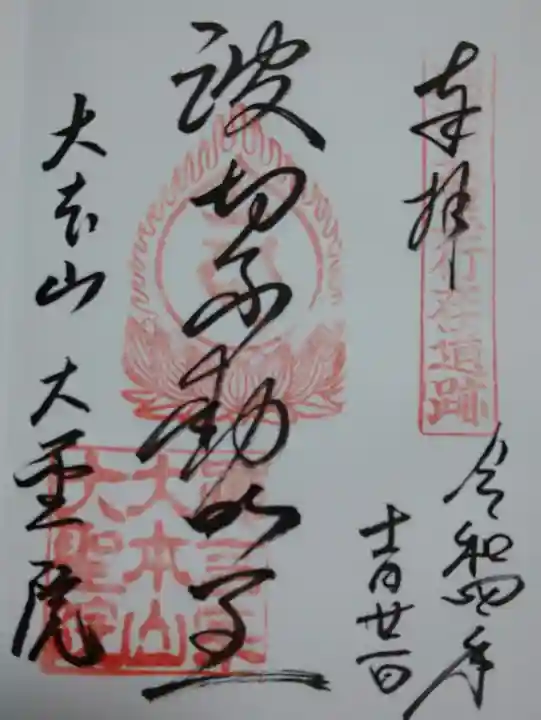 奉拝
行在遺跡
波切不動明王
大本山 大聖院
令和四年
十一月廿一日
真言宗
大本山
大聖院